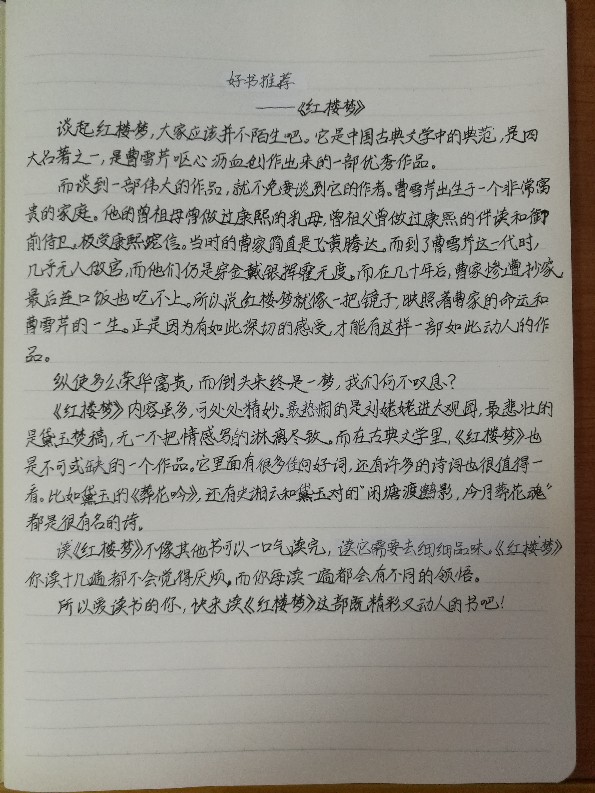 好书推荐
——《红楼梦》
谈起红楼梦,大家应该并不陌生吧。它是中国古典文学中的典范,是四
大名著之一,是曹雪芹呕心沥血创作出来的一部优秀作品。
而谈到一部伟大的作品,就不免要谈到它的作者。曹雪芹出生于一个非常富
贵的家庭。他的曾祖母曾做过康熙的乳母,曾祖父曾做过康熙的伴读和御
前侍卫。极受康熙宠信。当时的曹家简直是飞黄腾达。而到了曹雪芹这一代时,
几乎无人做官,而他们仍是穿金戴银挥霍无度。而在几十年后,曹家惨遭抄家,
最后连口饭也吃不上。所以说红楼梦就像一把镜子,映照着曹家的命运和
曹雪芹的一生。正是因为有如此深切的感受,才能有这样一部如此动人的作
品。
纵使多么荣华富贵,而倒头来终是一梦,我们何不叹息?
《红楼梦》内容虽多,可处处精妙。最热闹的是刘姥姥进大观园,最悲壮的
是黛玉焚稿,无一不把情感写的淋漓尽致。而在古典文学里,《红楼梦》也
是不可或缺的一个作品。它里面有很多佳句好词,还有许多的诗词也很值得一
看。比如黛玉的《葬花吟》,还有史湘云和黛玉对的“闲塘渡鹤影,冷月葬花魂”
都是很有名的诗。
读《红楼梦》不像其他书可以一口气读完,读它需要去细细品味。《红楼梦》
你读十几遍都不会觉得厌烦。而你每读一遍都会有不同的领悟。
所以爱读书的你,快来读《红楼梦》这部既精彩又动人的书吧!